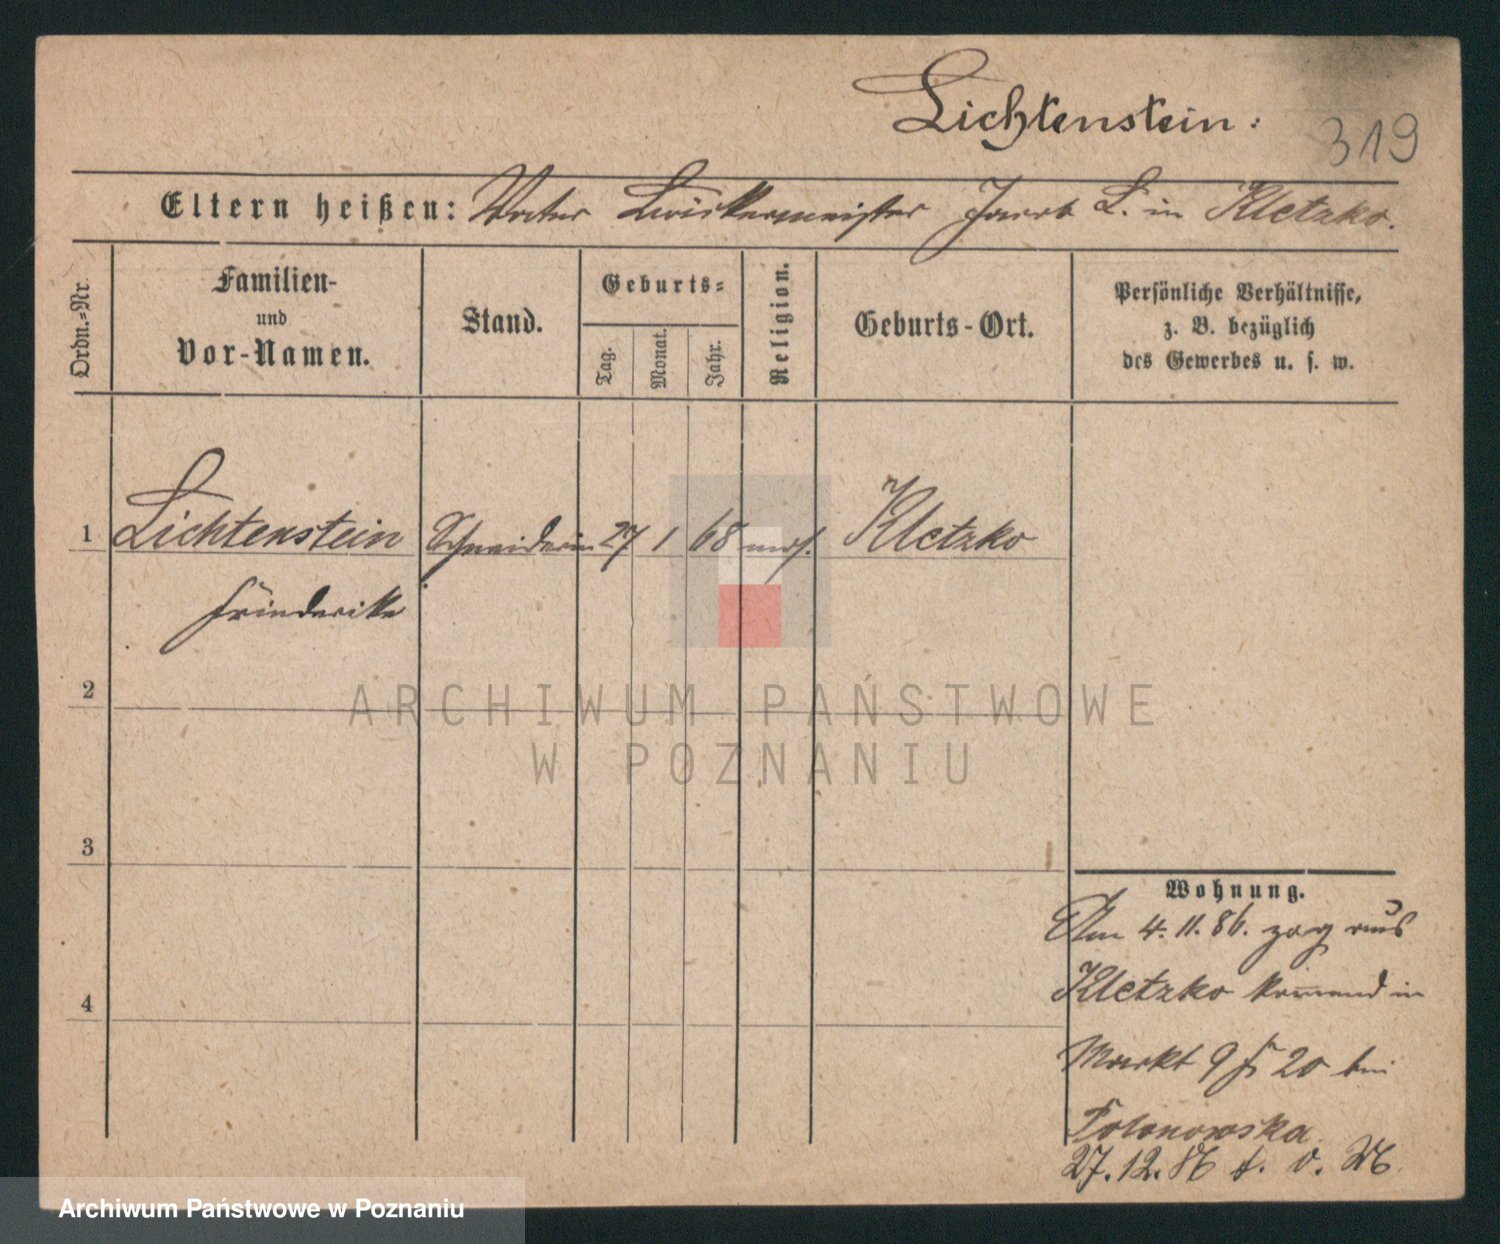 Lichtenstein:
319
Eltern heißen: Vater Bäckermeister Jacob L. in Kletzko.
Ordn.-Nr.
Familien-
und
Vor-Namen.
Stand.
Geburts-
Tag.
Monat.
Jahr.
Religion.
Geburts-Ort.
Persönliche Verhältnisse,
z. B. bezüglich
des Gewerbes u. s. w.
1 Lichtenstein Schneiderin 27 1 68 mos. Kletzko
Friederike
2
ARCHIWUM PAŃSTWOWE
W POZNANIU
3
4
Wohnung.
Am 4. 11. 86. zog aus
Kletzko kommend in
Markt 9 20 bei
27. 12. 86
Archiwum Państwowe w Poznaniu